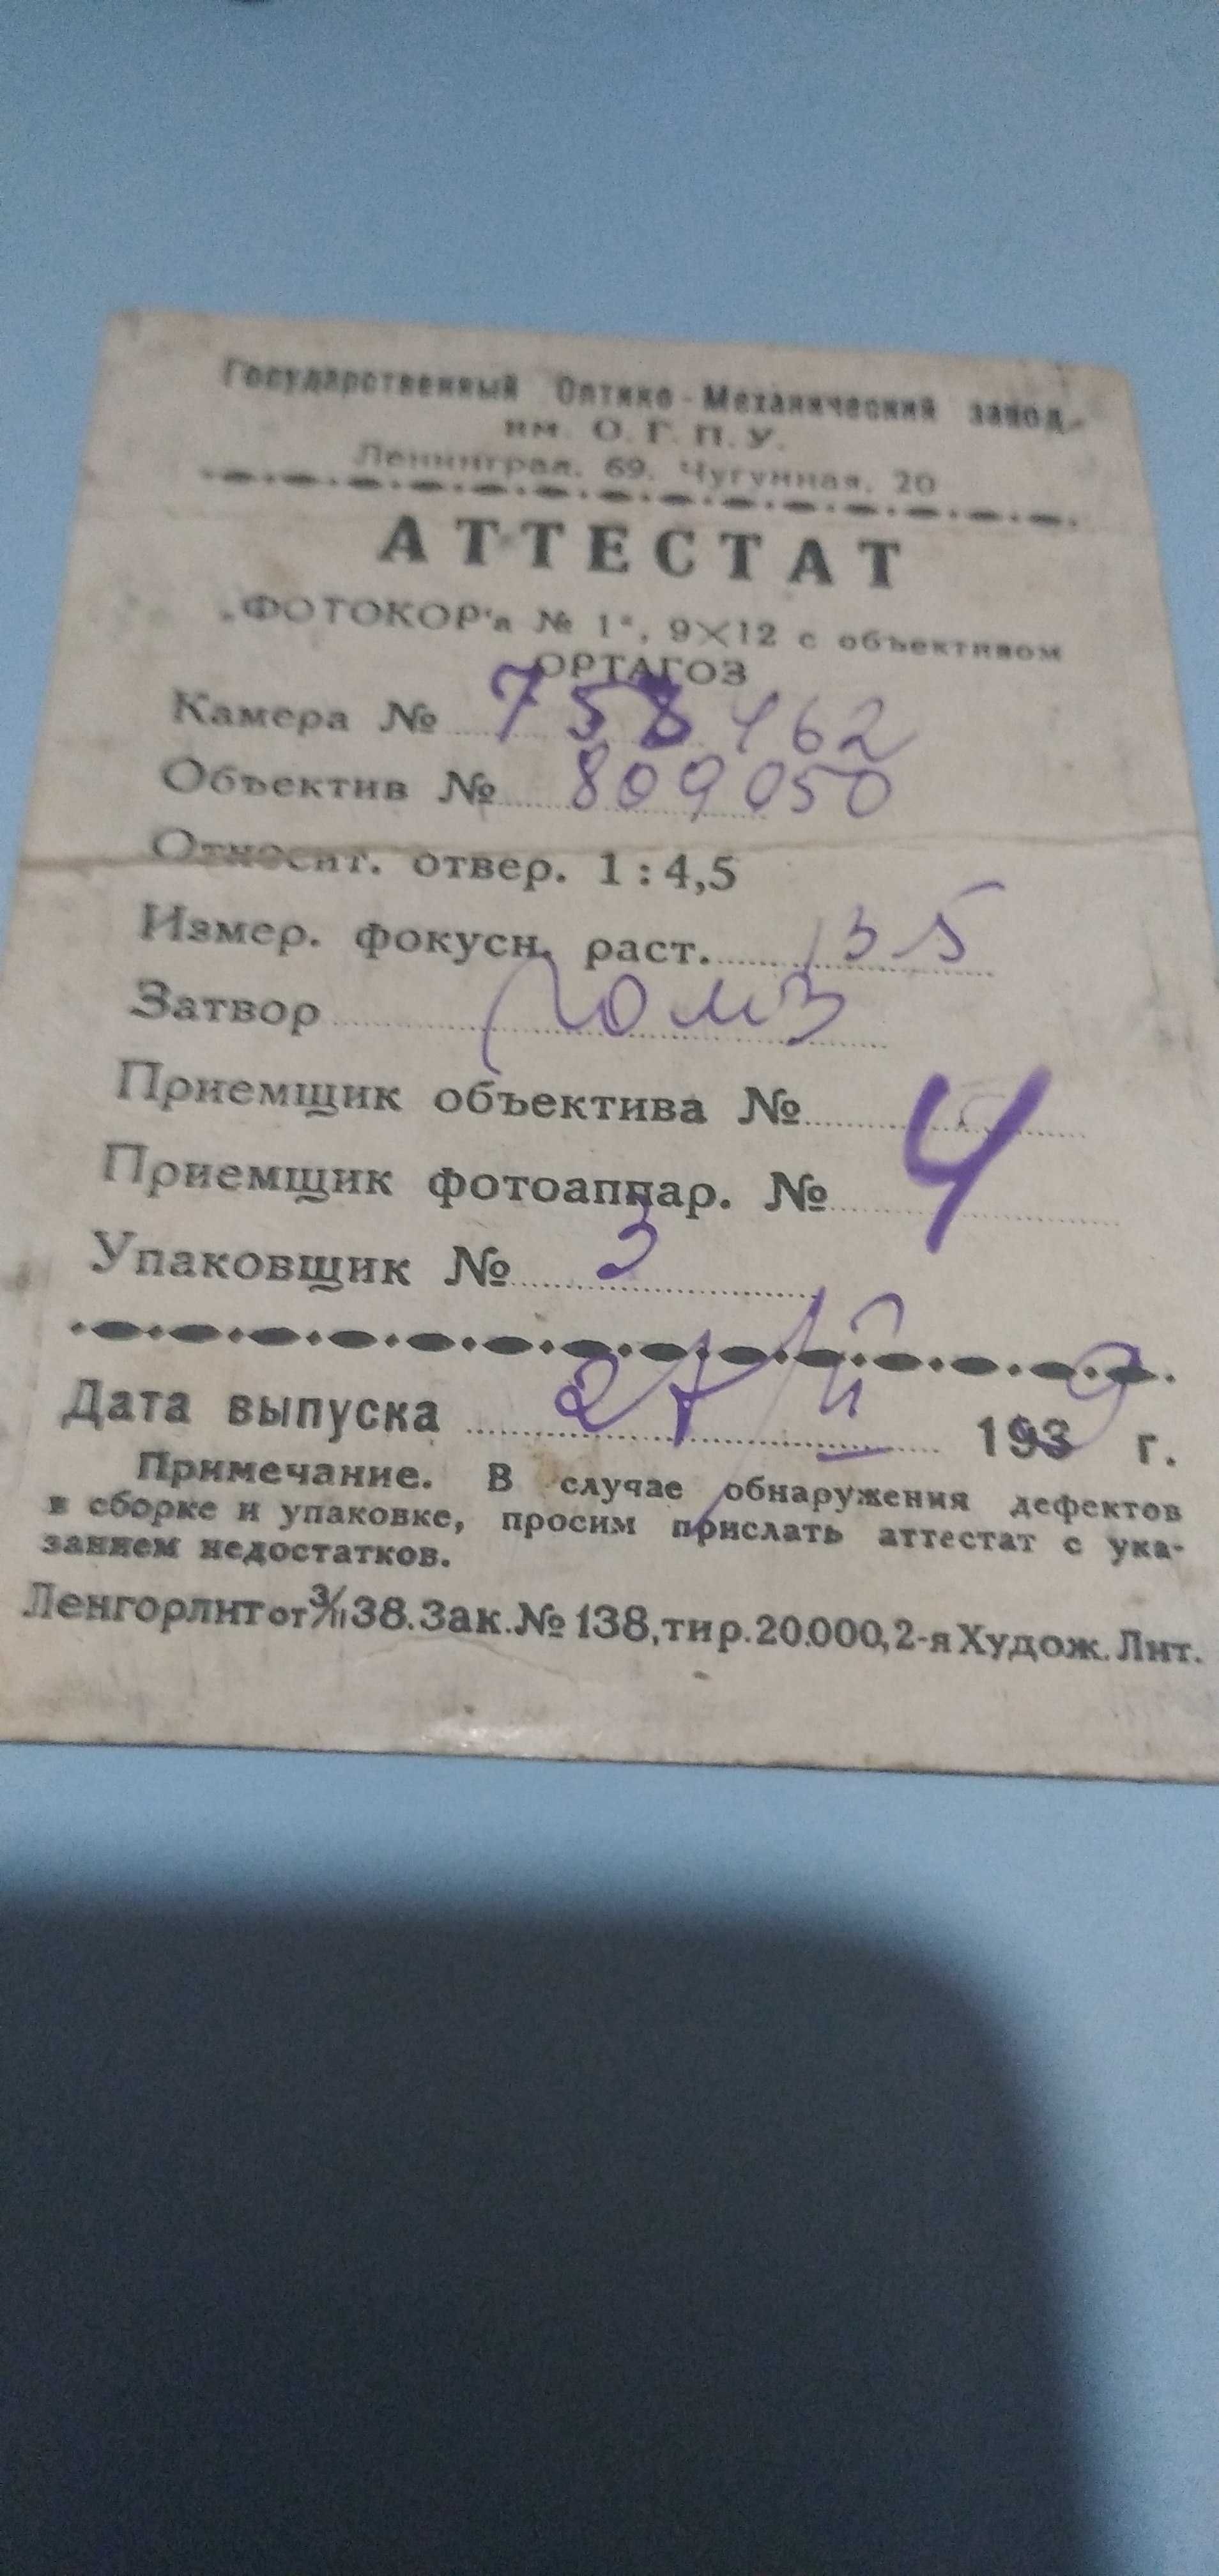 Государственный Оптико-Механический завод
им. О.Г.П.У.
Ленинград, 69, Чугунная, 20
АТТЕСТАТ
„ФОТОКОР'а № 1“, 9×12 с объективом
ОРТАГОЗ
Камера № 758462
Объектив № 809050
Относит. отвер. 1:4,5
Измер. фокусн. раст. 135
Затвор ГОМЗ
Приемщик объектива №
Приемщик фотоаппар. № 4
Упаковщик № 3
Дата выпуска 27/II 1939 г.
Примечание. В случае обнаружения дефектов
в сборке и упаковке, просим прислать аттестат с ука-
занием недостатков.
Ленгорлит от 3/II 38. Зак. № 138, тир. 20.000, 2-я Худож. Лит.